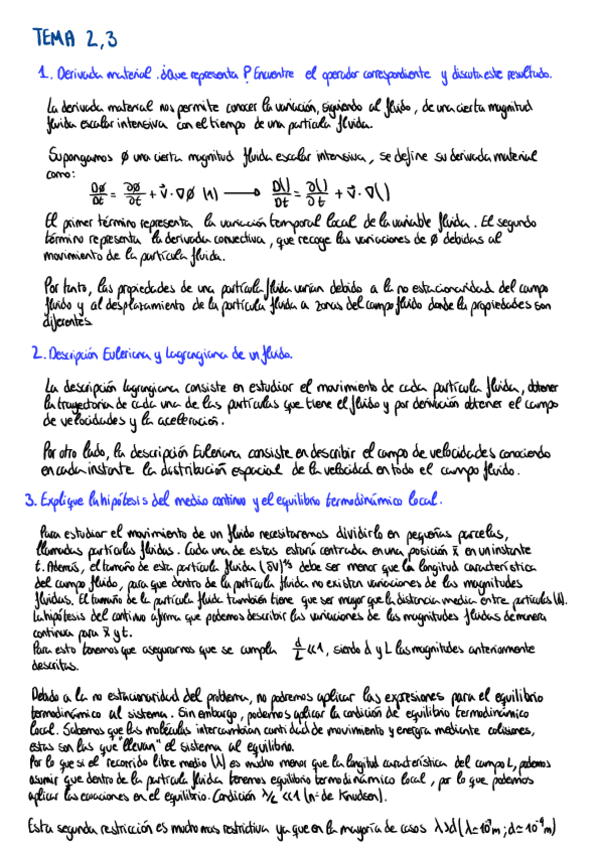 TEMA 2,3
1. Derivada material. ¿Que representa? Encuentre el operador correspondiente y discuta este resultado.
La derivada material nos permite conocer la variación, siguiendo al fluido, de una cierta magnitud
fluida escalar intensiva con el tiempo de una partícula fluida.
Supongamos ø una cierta magnitud fluida escalar intensiva, se define su derivada material
como:
Dø/Dt = ∂ø/∂t + v⃗ · ∇ø (1) ⟶ D()/Dt = ∂()/∂t + v⃗ · ∇()
El primer término representa la variación temporal local de la variable fluida. El segundo
término representa la derivada convectiva, que recoge las variaciones de ø debidas al
movimiento de la partícula fluida.
Por tanto, las propiedades de una partícula fluida varían debido a la no estacionaridad del campo
fluido y al desplazamiento de la partícula fluida a zonas del campo fluido donde la propiedades son
diferentes
2. Descripción Euleriana y Lagrangiana de un fluido.
La descripción lagrangiana consiste en estudiar el movimiento de cada partícula fluida, obtener
la trayectoria de cada una de las partículas que tiene el fluido y por derivación obtener el campo
de velocidades y la aceleración.
Por otro lado, la descripción Euleriana consiste en describir el campo de velocidades conociendo
en cada instante la distribución espacial de la velocidad en todo el campo fluido.
3. Explique la hipótesis del medio continuo y el equilibrio termodinámico local.
Para estudiar el movimiento de un fluido necesitaremos dividirlo en pequeñas parcelas,
llamadas partículas fluidas. Cada una de estas estará centrada en una posición x̄ en un instante
t. Además, el tamaño de esta partícula fluida (δV)^1/3 debe ser menor que la longitud característica
del campo fluido, para que dentro de la partícula fluida no existan variaciones de las magnitudes
fluidas. El tamaño de la partícula fluida también tiene que ser mayor que la distancia media entre partículas (d).
La hipótesis del continuo afirma que podemos describir las variaciones de las magnitudes fluidas de manera
continua para x̄ y t.
Para esto tenemos que asegurarnos que se cumpla d/L <<1, siendo d y L las magnitudes anteriormente
descritas.
Debido a la no estacionaridad del problema, no podremos aplicar las expresiones para el equilibrio
termodinámico al sistema. Sin embargo, podemos aplicar la condición de equilibrio termodinámico
local. Sabemos que las moléculas intercambian cantidad de movimiento y energía mediante colisiones,
estas son las que "llevan" el sistema al equilibrio.
Por lo que si el recorrido libre medio (λ) es mucho menor que la longitud característica del campo L, podemos
asumir que dentro de la partícula fluida tenemos equilibrio termodinámico local, por lo que podemos
aplicar las ecuaciones en el equilibrio. Condición λ/L <<1 (nº de Knudsen).
Esta segunda restricción es mucho mas restrictiva ya que en la mayoría de casos λ>d